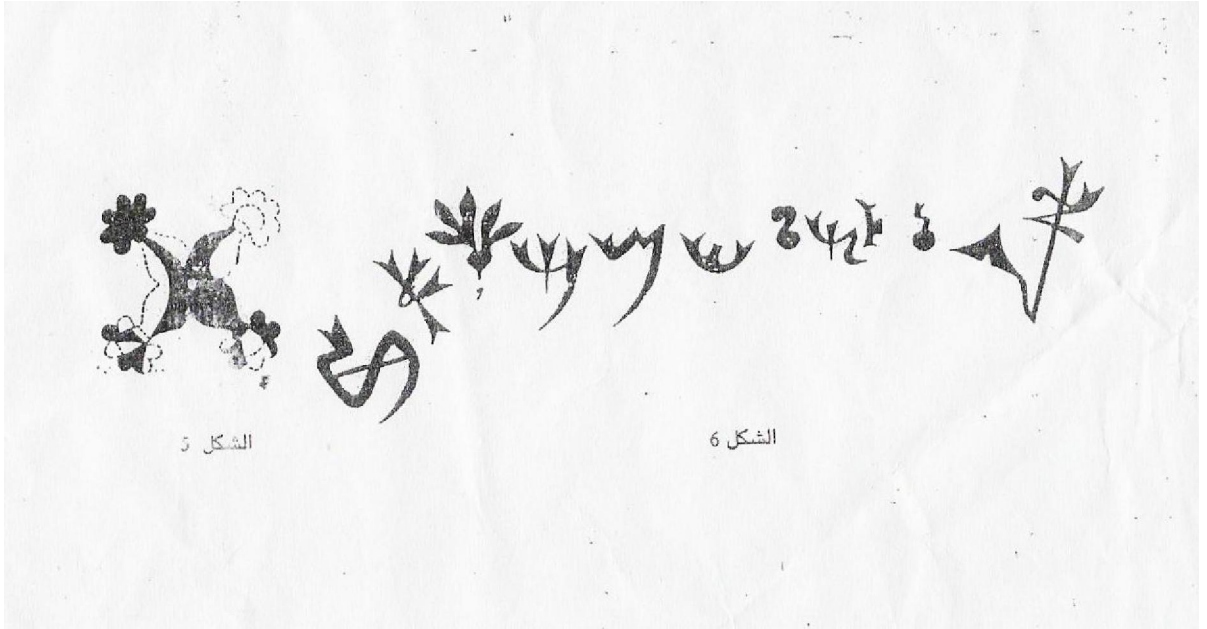 الشكل 5
الشكل 6